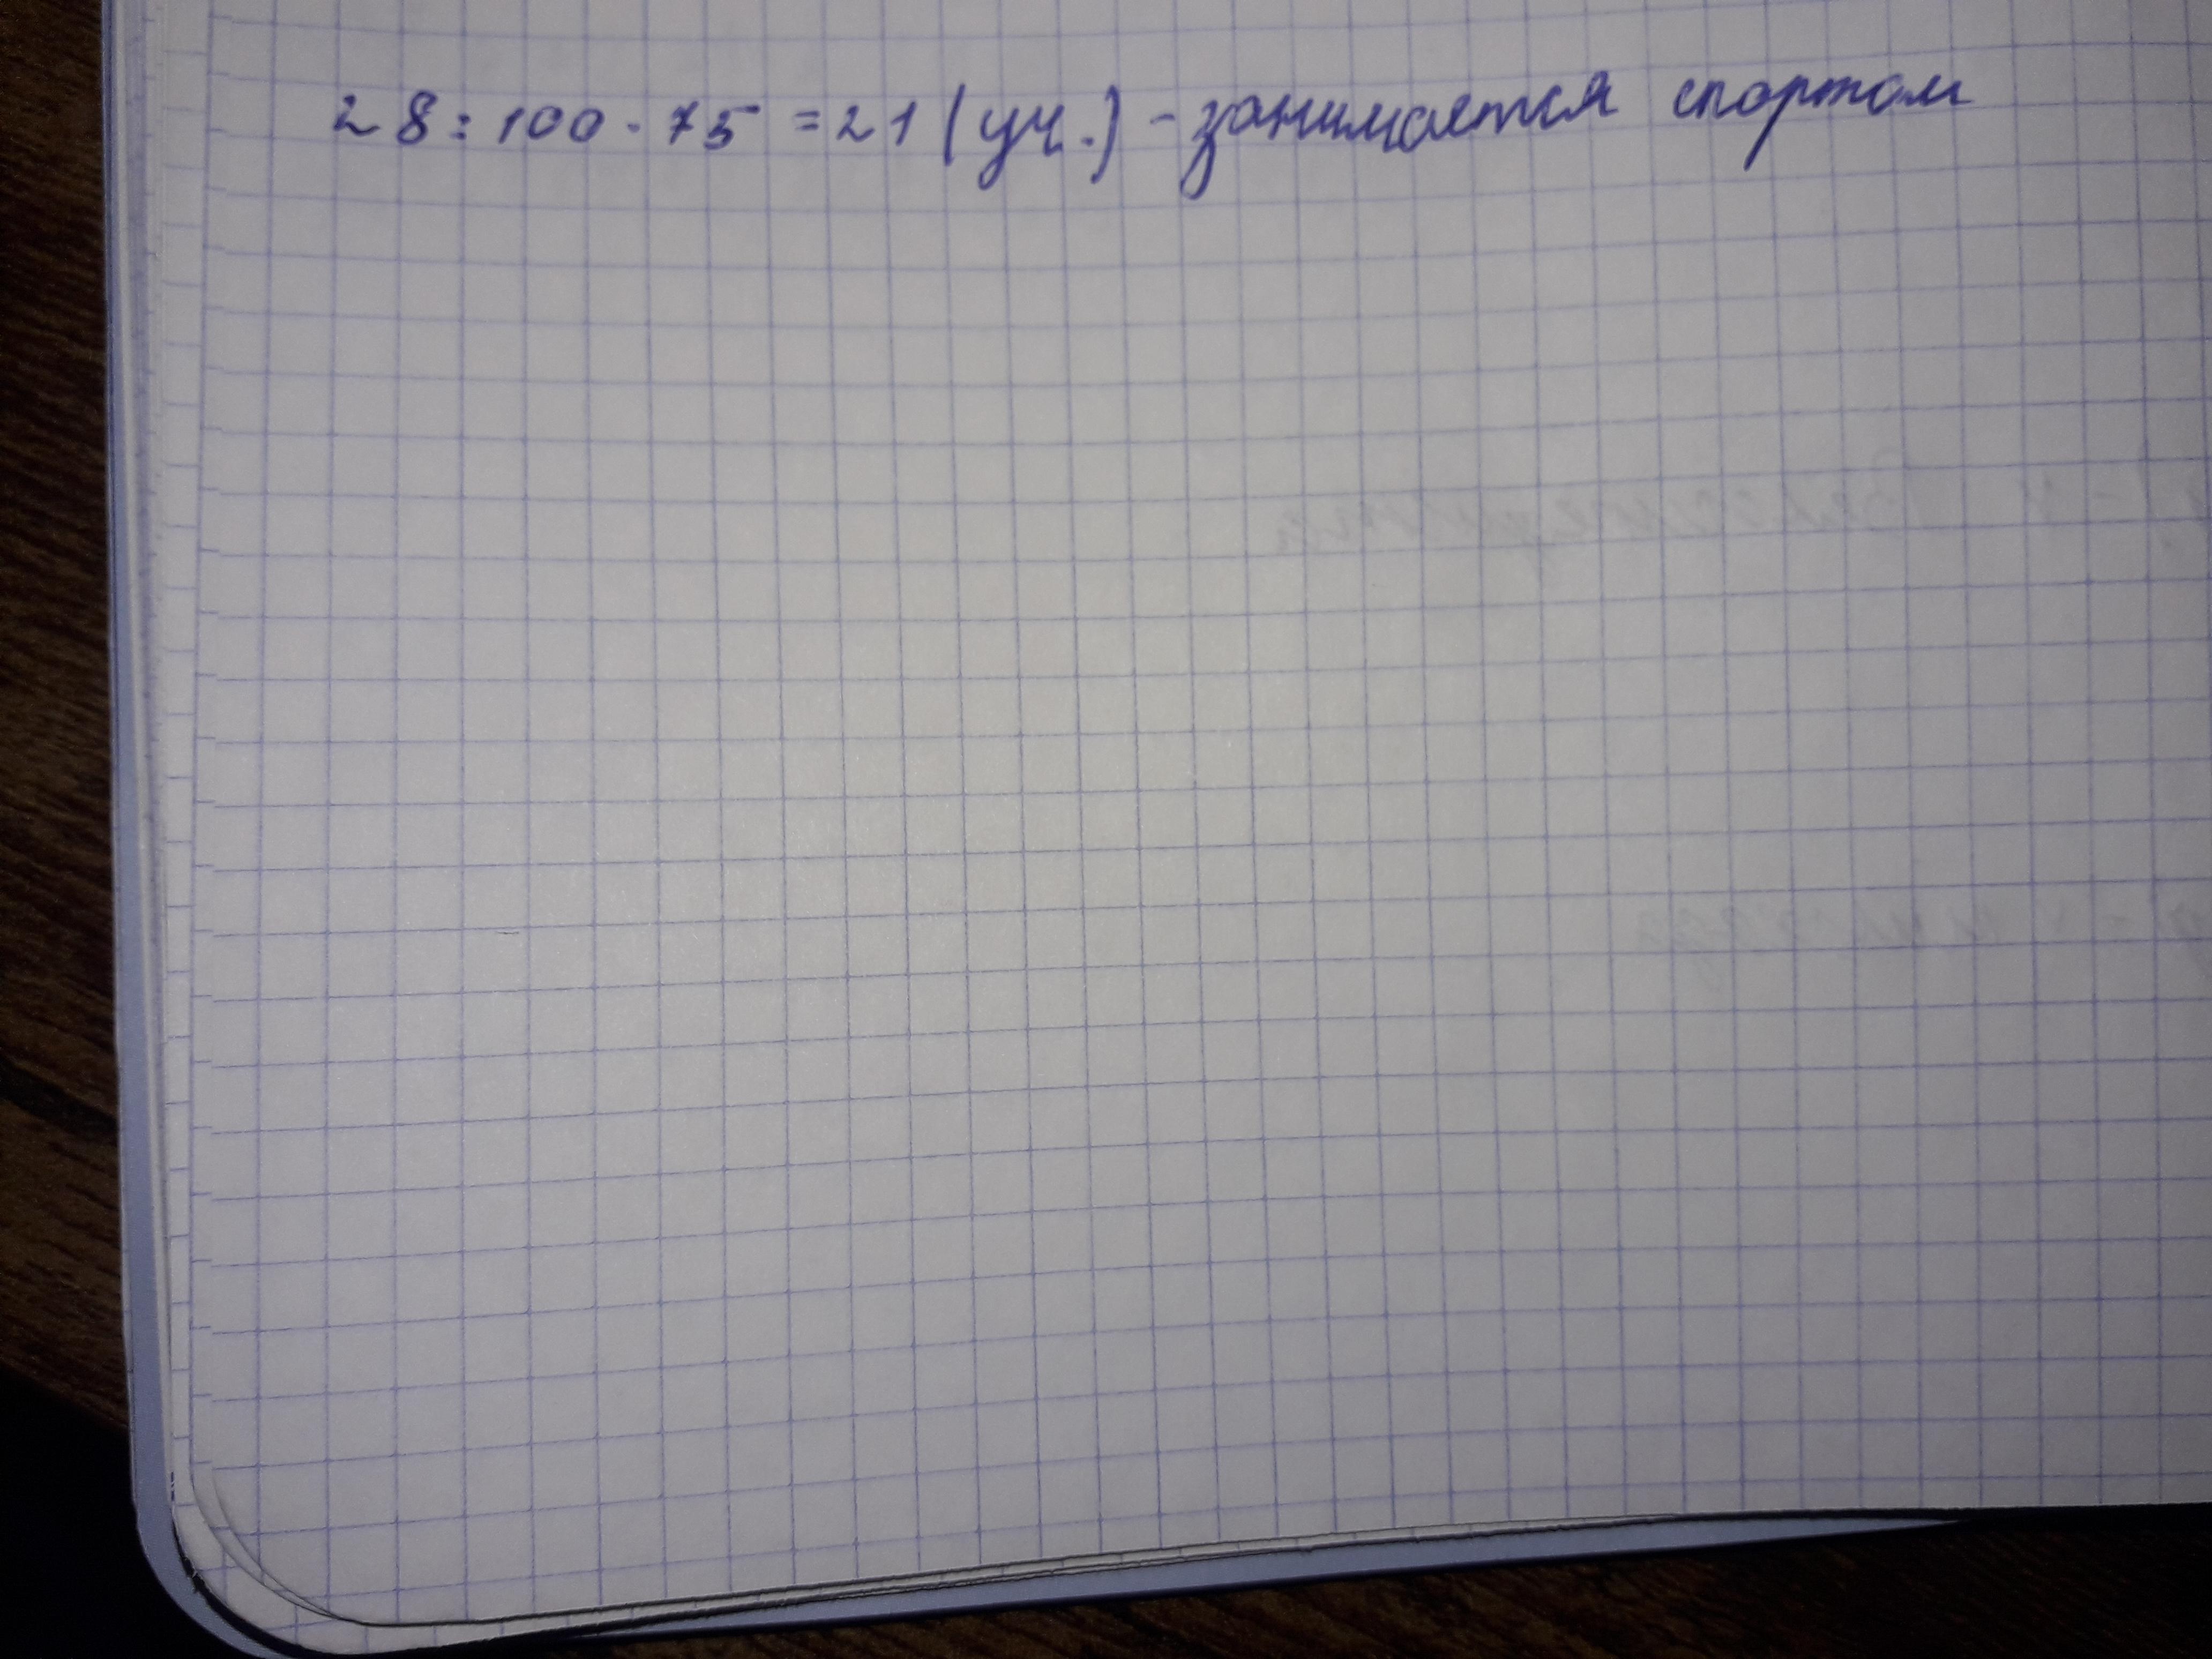 28 : 100 · 75 = 21 (уч.) - занимается спортом